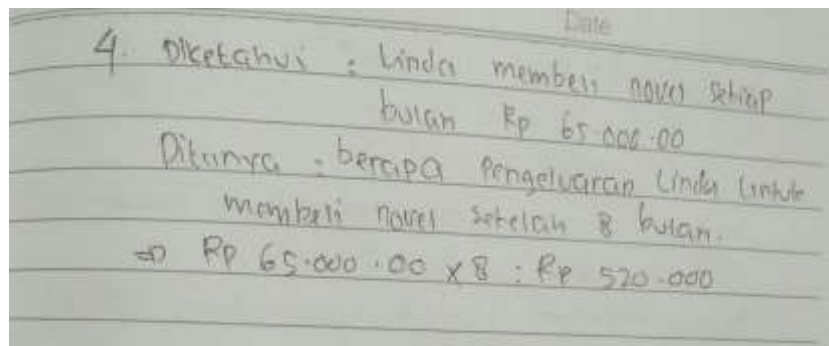 Date
4. Diketahui : Linda membeli novel setiap
bulan Rp 65.000.00
Ditanya : berapa Pengeluaran Linda Untuk
membeli novel setelah 8 bulan.
⇒ Rp 65.000.00 x 8 : Rp 520.000